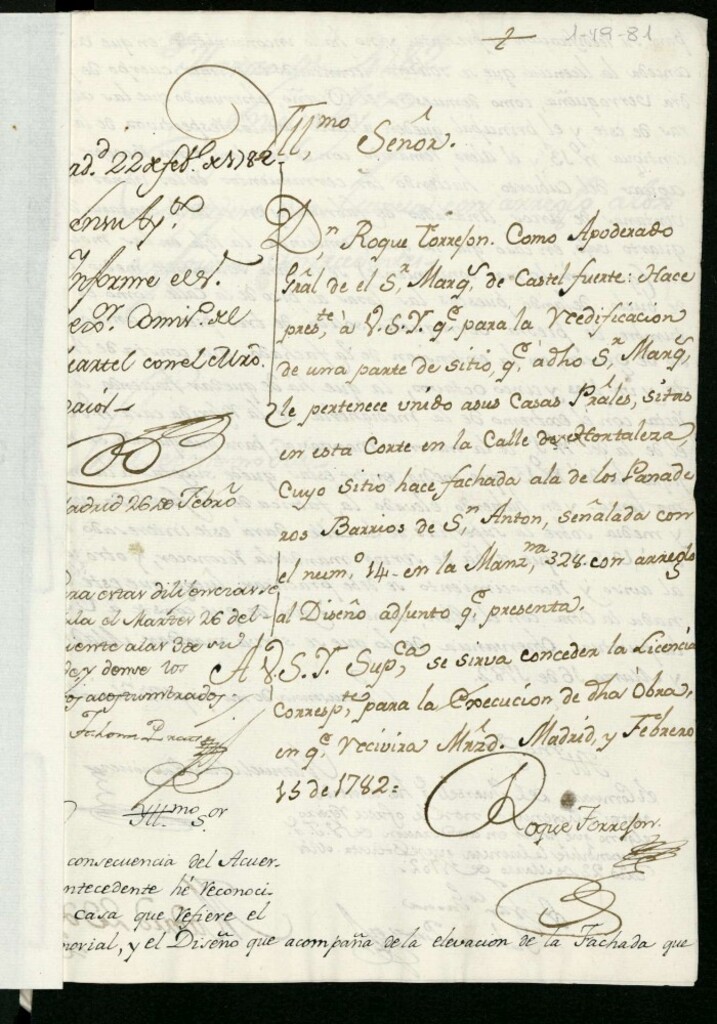 1-49-81
Yll,mo Señor.
D,n Roque Torreson. Como Apoderado
Grâl de el S,r Marq,s de Castel fuerte: Hace
pres,te à V.S.Y. q,e para la reedificacion
de una parte de sitio, q,e â dho S,r Marq,s
le pertenece unido asus Casas Prâles, sitas
en esta Corte en la Calle de Hortaleza,
Cuyo sitio hace fachada ala de los Panade
ros Barrios de S,n Anton, señalada con
el num,o 14 en la Manz,na 328. con arreglo
al Diseño adjunto q,e presenta.
A V.S.Y. Sup,ca se sirva conceder la Licencia
Corresp,te para la Execucion de dha Obra,
en q,e recivira Mrzd. Madrid, y Febrero
15 de 1782=
Roque Torreson.
ad.d 22 de feb.o de 1782
Informe el S.r
cartel con el Mro.
adrid 26 de Febro
ra estar dilienciarse
la el Martes 26 del
iente alas 3 de su
de, y dense los
os acostumbrados
Yll.mo S.or
consecuencia del Acuer-
ntecedente hé reconoci-
casa que refiere el
morial, y el Diseño que acompaña de la elevacion de la Fachada que